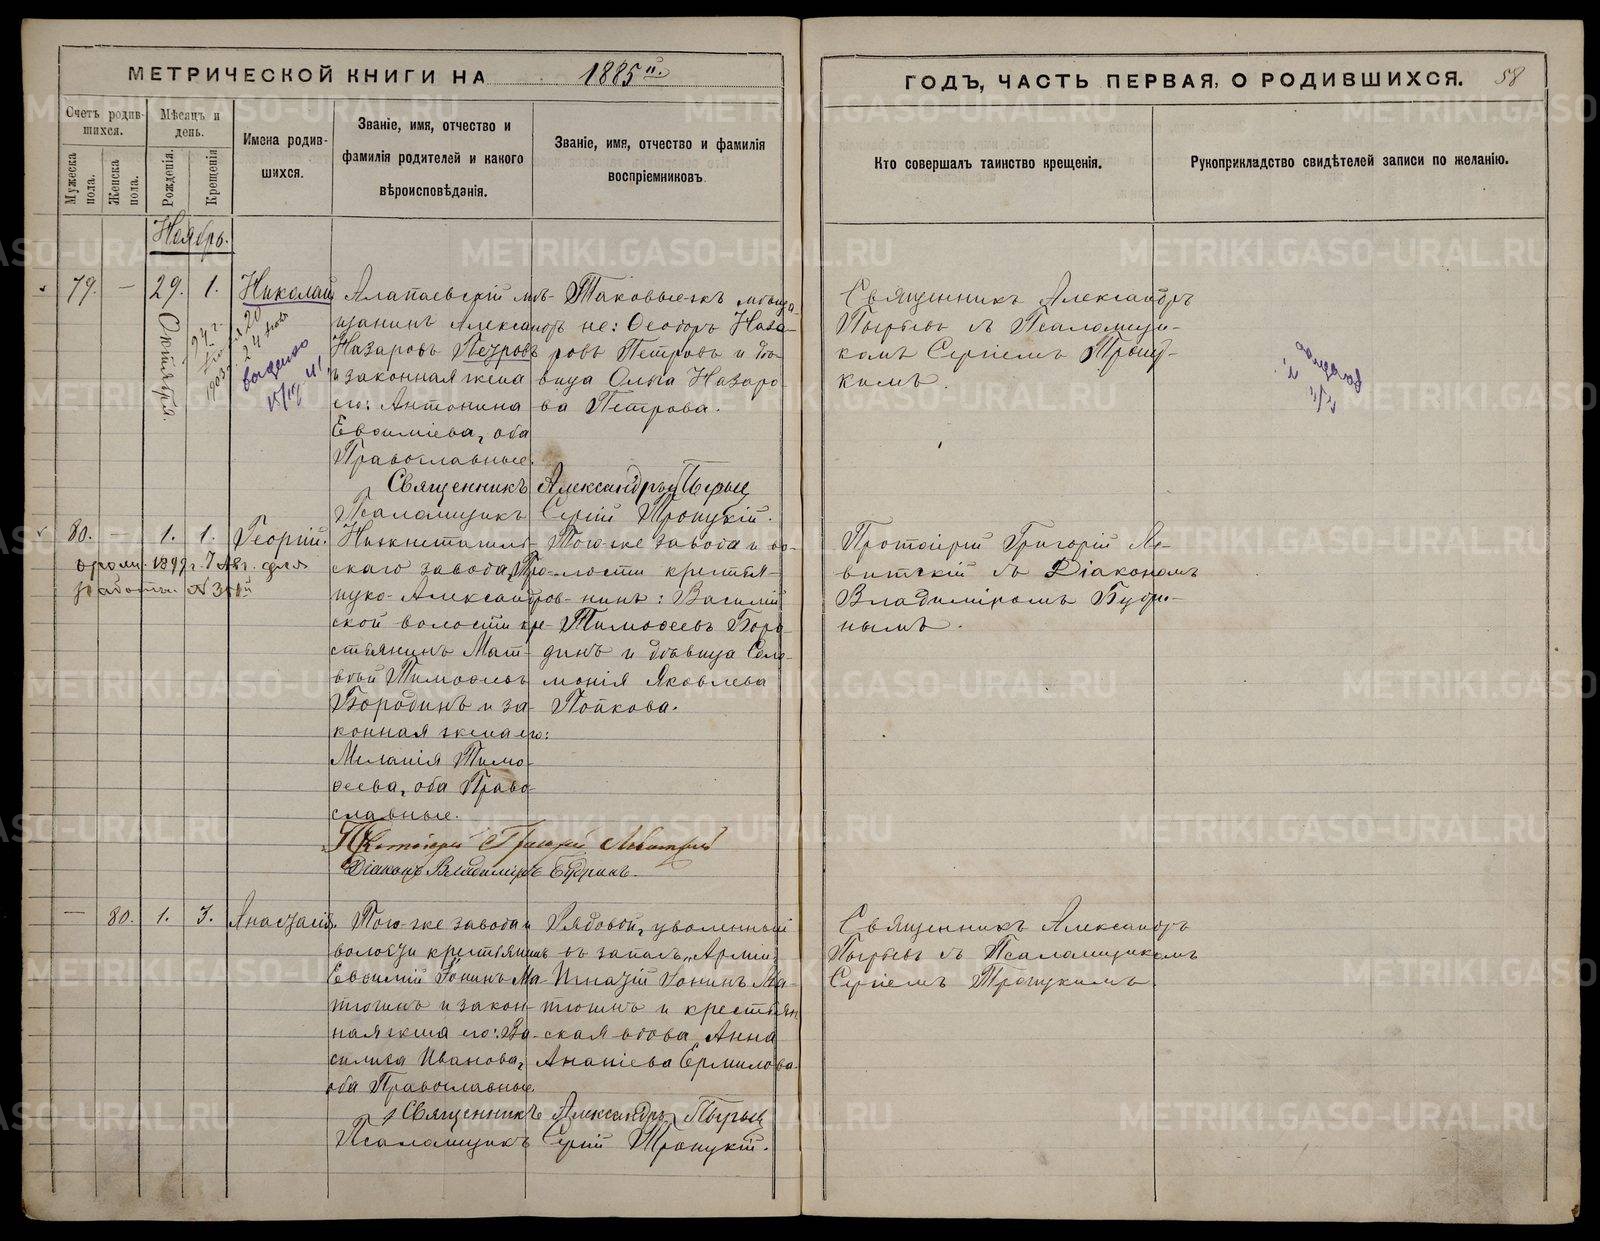 МЕТРИЧЕСКОЙ КНИГИ НА 1885 й.
ГОДЪ, ЧАСТЬ ПЕРВАЯ, О РОДИВШИХСЯ. 58
Счетъ родившихся.
Мужеска пола.
Женска пола.
Мѣсяцъ и день.
Рожденія.
Крещенія
Имена родившихся.
Званіе, имя, отчество и
фамилія родителей и какого
вѣроисповѣданія.
Званіе, имя, отчество и фамилія
воспріемниковъ.
Кто совершалъ таинство крещенія.
Рукоприкладство свидѣтелей записи по желанію.
Ноябрь.
79. — 29. 1. Николай
Октября.
выдено
Алапаевскій мѣ-
щанинъ Александръ
Назаровъ Петровъ
и законная жена
его: Антонина
Евѳиміева, оба
Православные.
Таковые-жъ мѣща-
не: Ѳеодоръ Наза-
ровъ Петровъ и дѣ-
вица Ольга Назаро-
ва Петрова.
Священникъ Александръ
Пырьевъ съ Псаломщи-
комъ Сергіемъ Троиц-
кимъ.
Священникъ Александръ Пырьевъ
Псаломщикъ Сергій Троицкій.
80. — 1. 1. Георгій.
1897 г. 7 Авг. для
работы. №
Нижнетагиль-
скаго завода, Тро-
ицко-Александров-
ской волости кре-
стьянинъ Мат-
вѣй Тимоѳеевъ
Бородинъ и за-
конная жена его:
Меланія Тимо-
ѳеева, оба Право-
славные.
Того-же завода и во-
лости крестья-
нинъ: Василій
Тимоѳеевъ Боро-
динъ и дѣвица Соло-
монія Яковлева
Пойкова.
Протоіерей Григорій Ле-
витскій съ Діакономъ
Владиміромъ Будри-
нымъ.
Протоіерей Григорій Левитскій
Діаконъ Владиміръ Будринъ.
— 80. 1. 3. Анастасія.
Того-же завода и
волости крестьянинъ
Евѳимій Іонинъ Ма-
тюгинъ и закон-
ная жена его: Ва-
силиса Иванова,
оба Православные.
Рядовой, уволенный
въ запасъ „Арміи“,
Игнатій Іонинъ Ма-
тюгинъ и крестьян-
ская вдова Анна
Ананіева Ермилова.
Священникъ Александръ
Пырьевъ съ Псаломщикомъ
Сергіемъ Троицкимъ.
Священникъ Александръ Пырьевъ
Псаломщикъ Сергій Троицкій.
METRIKI.GASO-URAL.RU